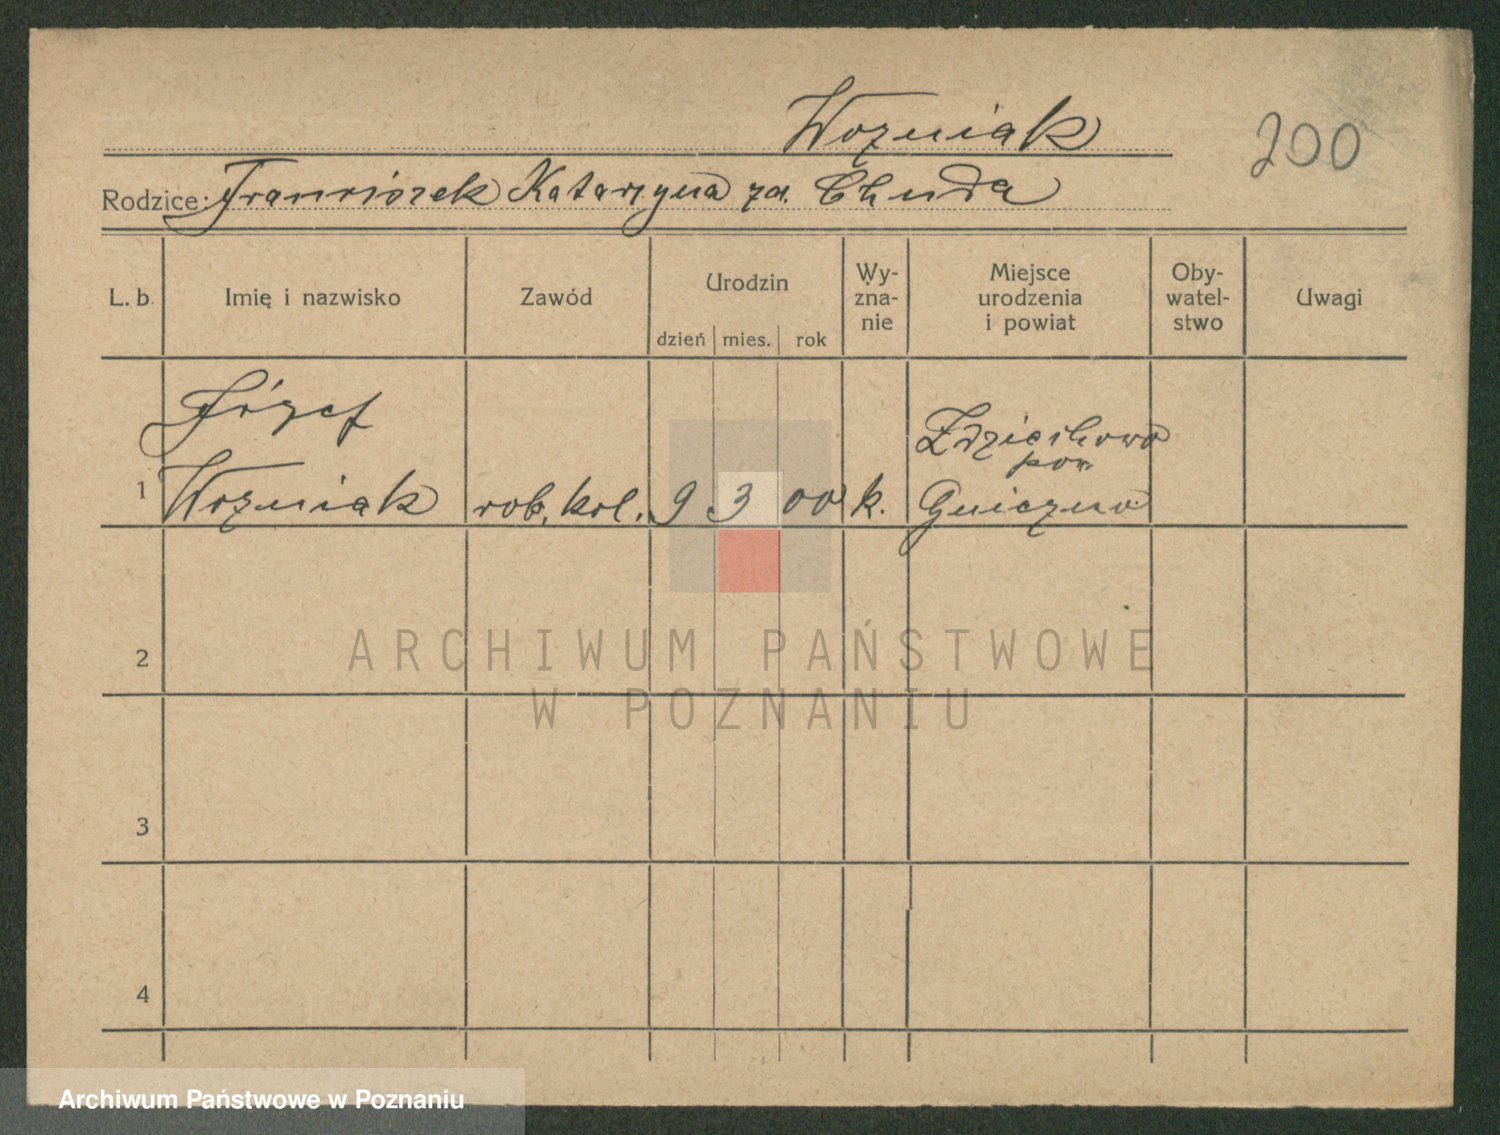 Wozniak
200
Rodzice: Franciszek Katarzyna zd. Chuda
L. b. Imię i nazwisko Zawód Urodzin Wy-
zna-
nie Miejsce
urodzenia
i powiat Oby-
watel-
stwo Uwagi
dzień mies. rok
Józef
Zdziechowo
pow.
1 Wozniak rob. kol. 9 3 00 k. Gniezno
2
ARCHIWUM PAŃSTWOWE
W POZNANIU
3
4
Archiwum Państwowe w Poznaniu